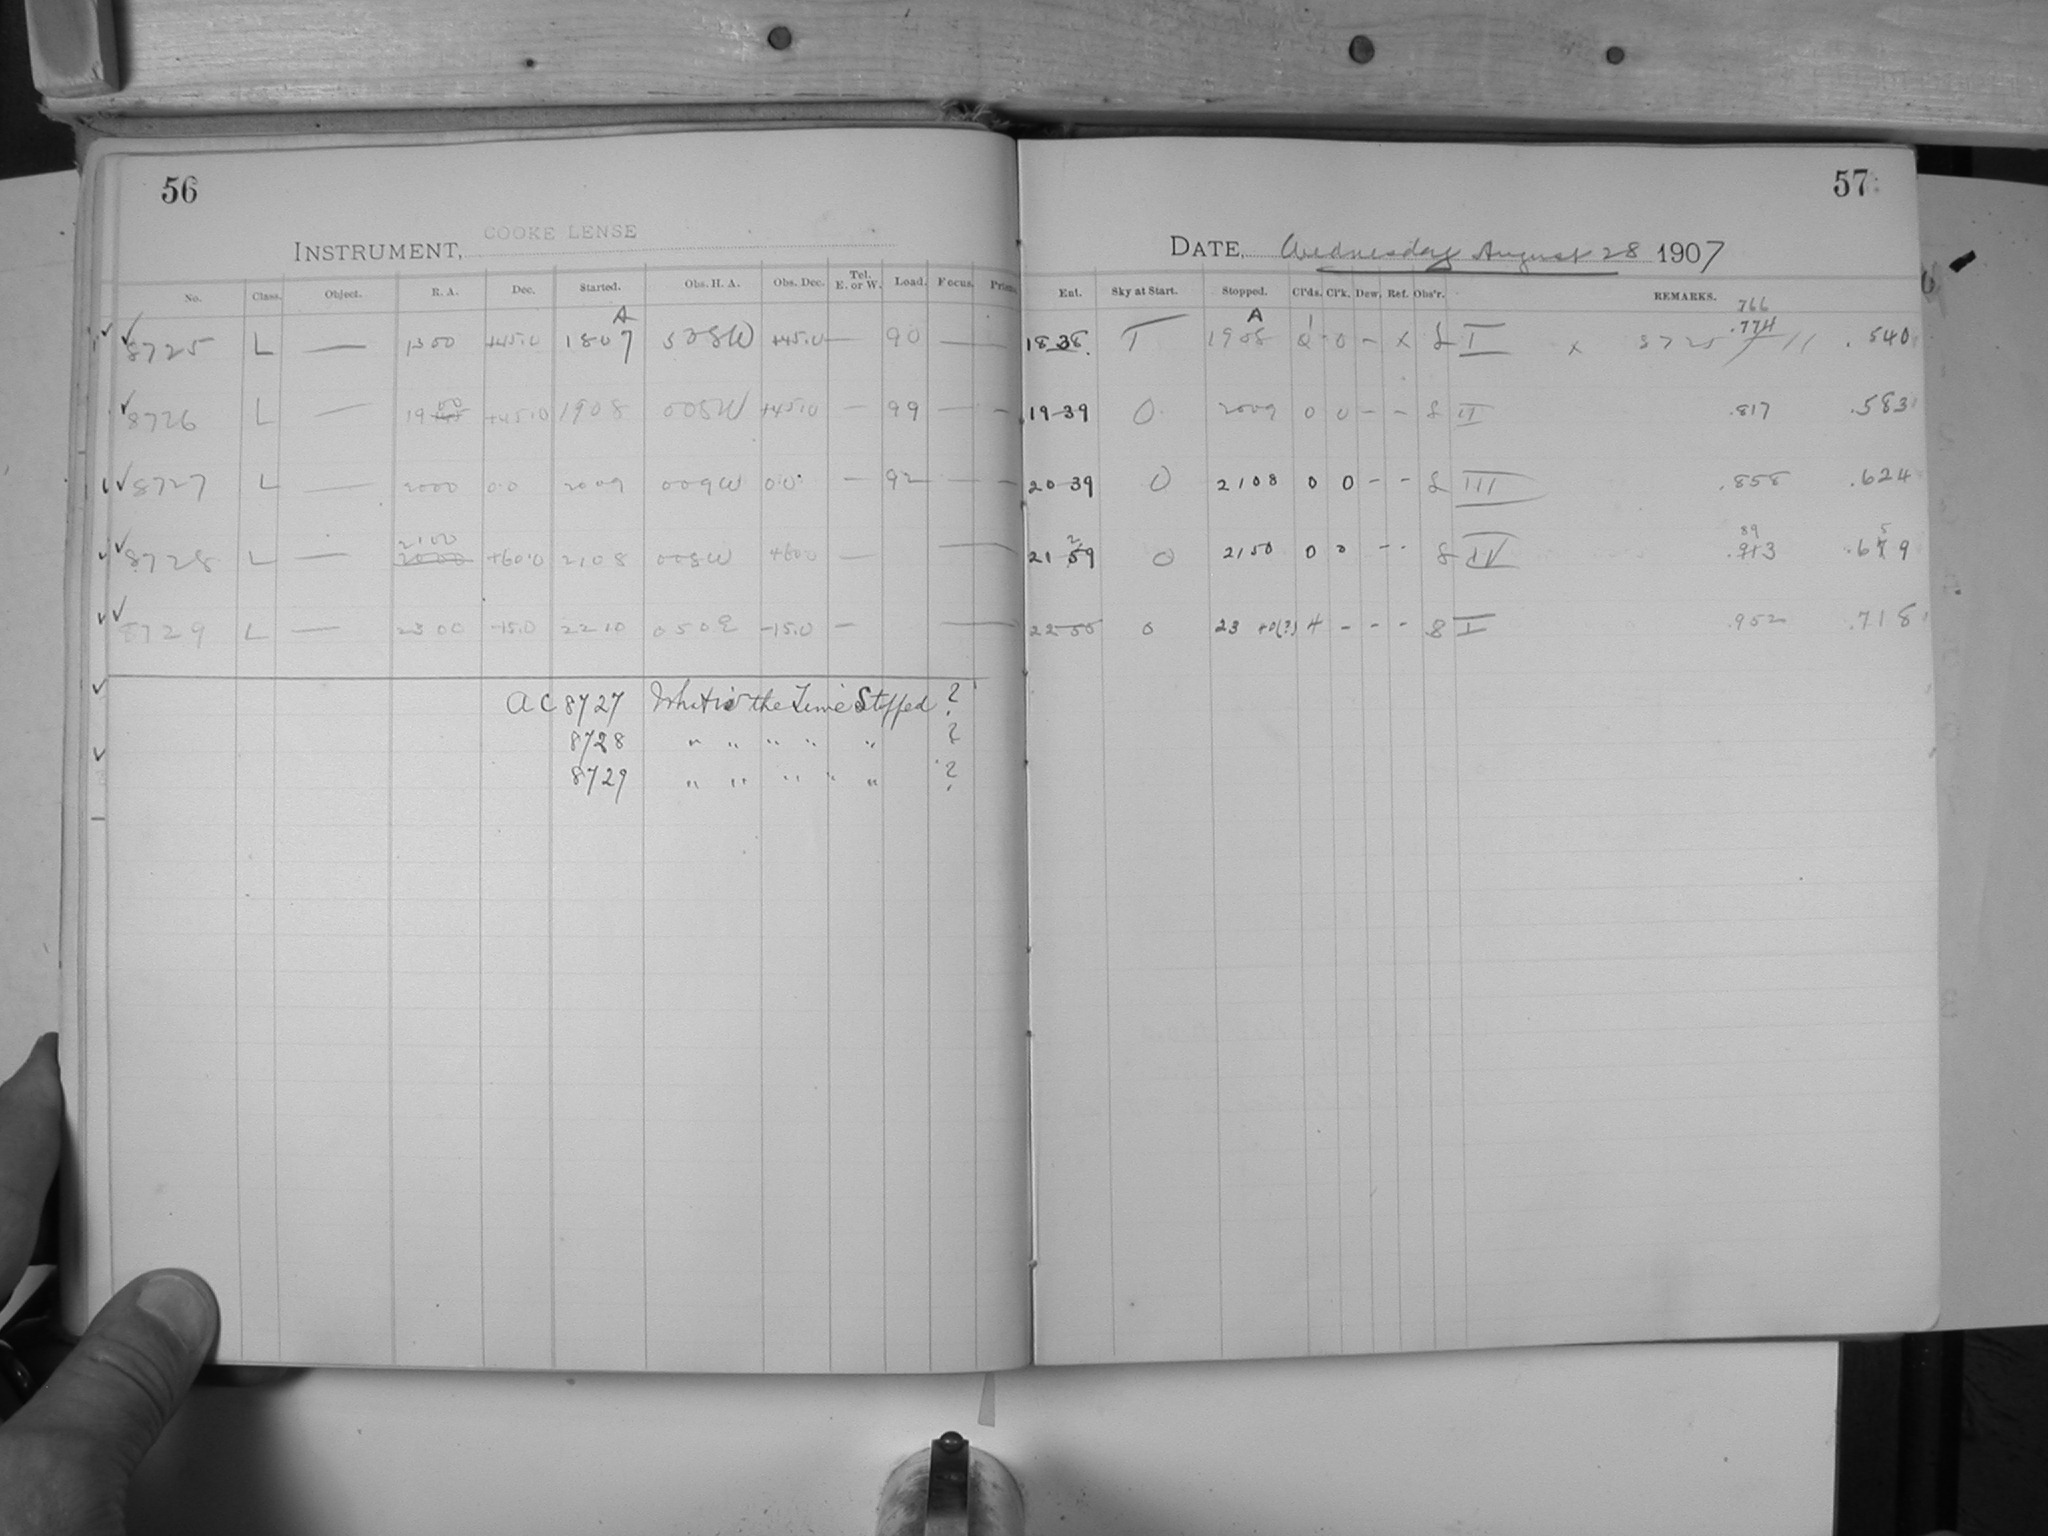 56
57
INSTRUMENT, COOKE LENSE
DATE, Wednesday August 28 1907
No. Class. Object. R. A. Dec. Started. Obs. H. A. Obs. Dec. Tel. E. or W. Load. Focus. Prism. Ent. Sky at Start. Stopped. Cl'ds. Cl'k. Dew. Ref. Obs'r. REMARKS.
A A 766
8725 L — +45.0 1807 +45.0 — 90 — — 18 38 T 1908 0 - X I X 8725 .774 .540
8726 L — 19 00 +45.0 1908 008W +45.0 — 99 — — 19 39 0 2009 0 0 - - II .817 .583
8727 L — 2000 0.0 2009 009W 0.0 — 92 — — 20 39 0 2108 0 0 - - III .858 .624
2100 2 89 5
8728 L — 2000 +60.0 2108 008W +60.0 — — 21 59 0 2150 0 0 - - IV .913 .679
8729 L — 2300 -15.0 2210 050E -15.0 — — 0 23 4 - - - I .952 .718
A C 8727 What is the Time Stopped ?
8728 " " " " " ?
8729 " " " " " ?